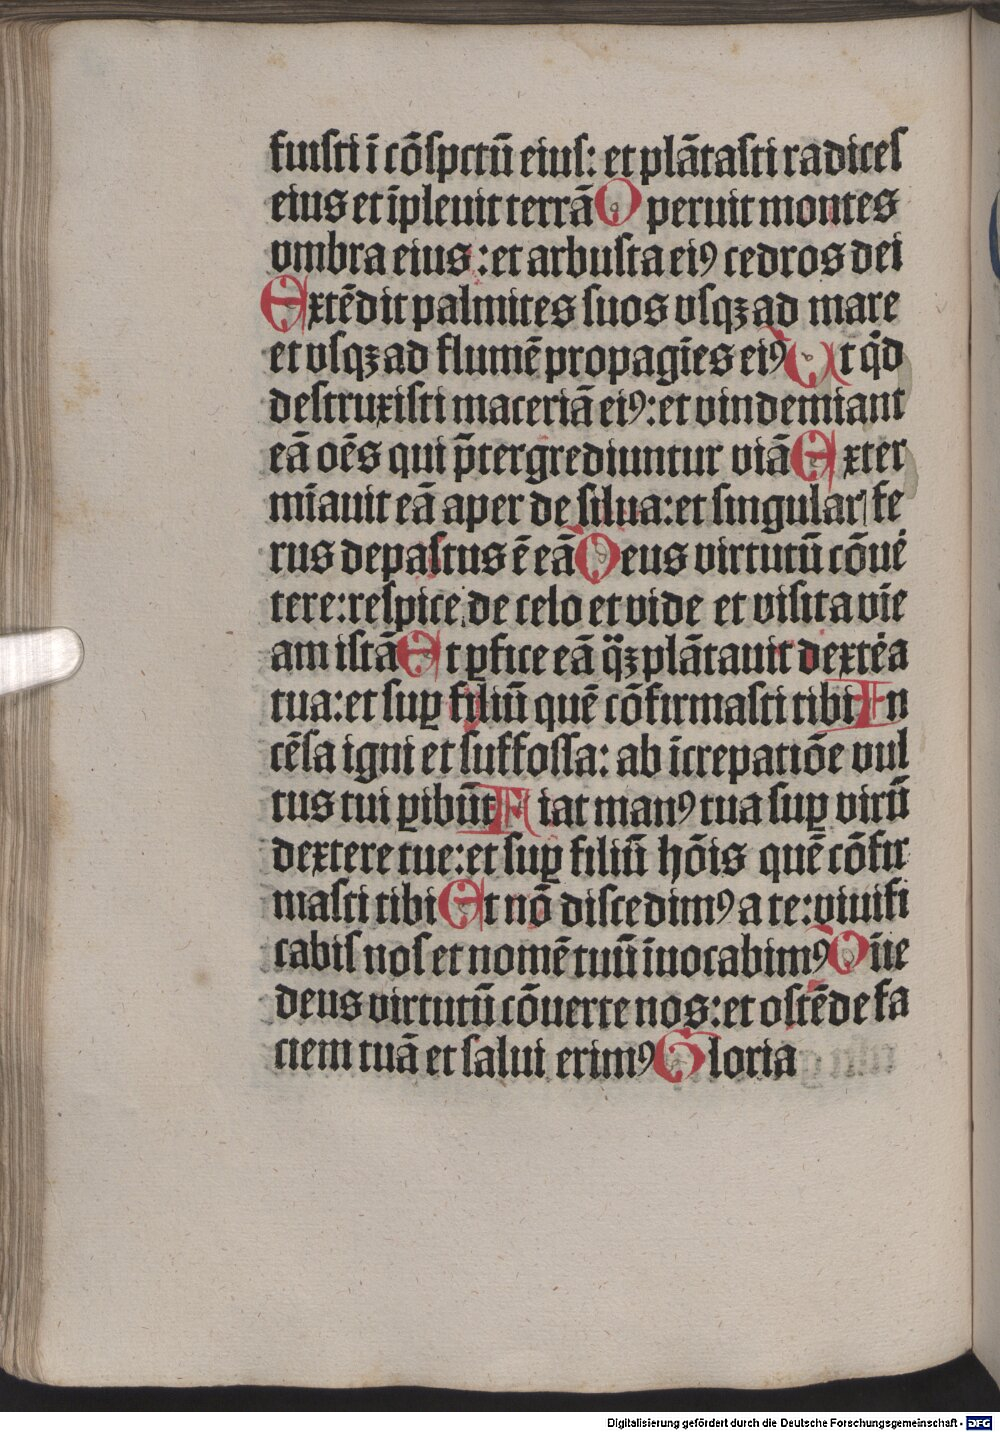 fuisti ī cōspctū eius: et plātasti radices
eius et īpleuit terrā Operuit montes
vmbra eius: et arbusta eiꝰ cedros dei
Extēdit palmites suos vsqꝫ ad mare
et vsqꝫ ad flumē propagīes eiꝰ Ut qͥd
destruxisti maceriā eiꝰ: et vindemiant
eā oēs qui p̄tergrediuntur viā Exter
mīauit eā aper de silua: et singular fe
rus depastus ē eā Deus virtutū cōue
tere: respice de celo et vide et visita vīe
am istā Et ꝑfice eā q̄ꝫ plātauit dextēa
tua: et suꝑ filiū quē cōfirmasti tibi In
cēsa igni et suffossa: ab īcrepatiōe vul
tus tui ꝑibūt Fiat manꝰ tua suꝑ virū
dextere tue: et suꝑ filiū hōis quē cōfir
masti tibi Et nō discedimꝰ a te: viuifi
cabis nos et nomē tuū īuocabimꝰ Dn̄e
deus virtutū cōuerte nos: et ostēde fa
ciem tuā et salui erimꝰ Gloria
Digitalisierung gefördert durch die Deutsche Forschungsgemeinschaft - DFG